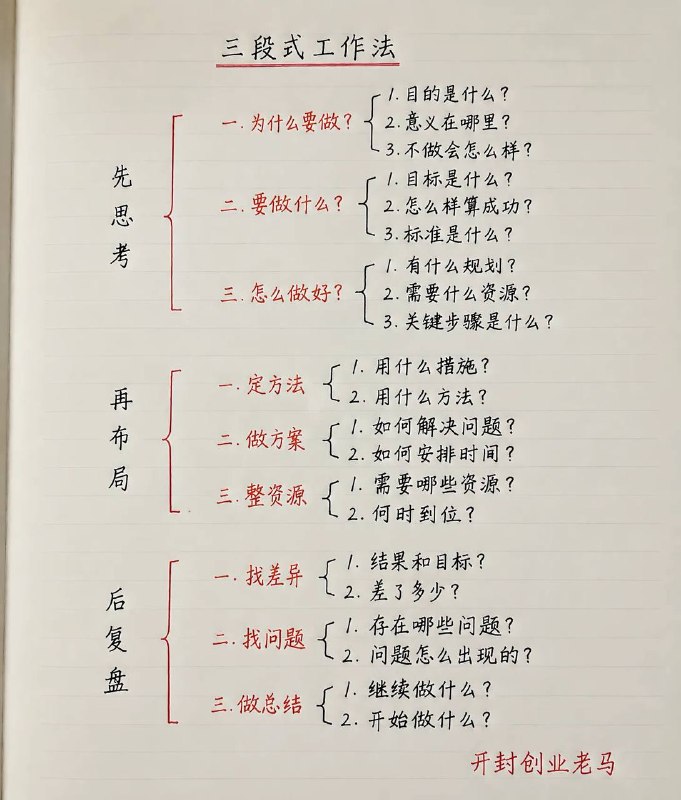 三段式工作法
先思考
一.为什么要做?
1.目的是什么?
2.意义在哪里?
3.不做会怎么样?
二.要做什么?
1.目标是什么?
2.怎么样算成功?
3.标准是什么?
三.怎么做好?
1.有什么规划?
2.需要什么资源?
3.关键步骤是什么?
再布局
一.定方法
1.用什么措施?
2.用什么方法?
二.做方案
1.如何解决问题?
2.如何安排时间?
三.整资源
1.需要哪些资源?
2.何时到位?
后复盘
一.找差异
1.结果和目标?
2.差了多少?
二.找问题
1.存在哪些问题?
2.问题怎么出现的?
三.做总结
1.继续做什么?
2.开始做什么?
开封创业老马